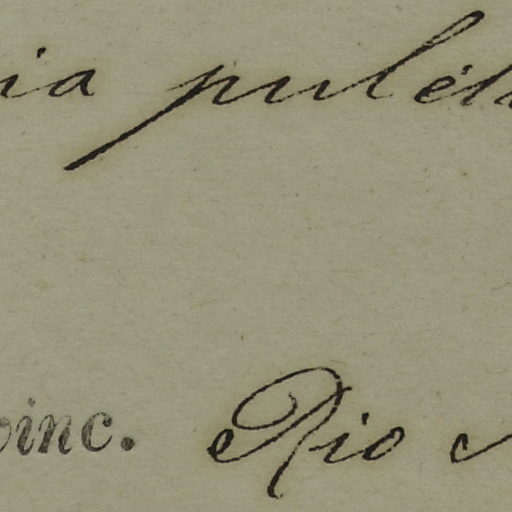 ia pulch
oinc. Rio